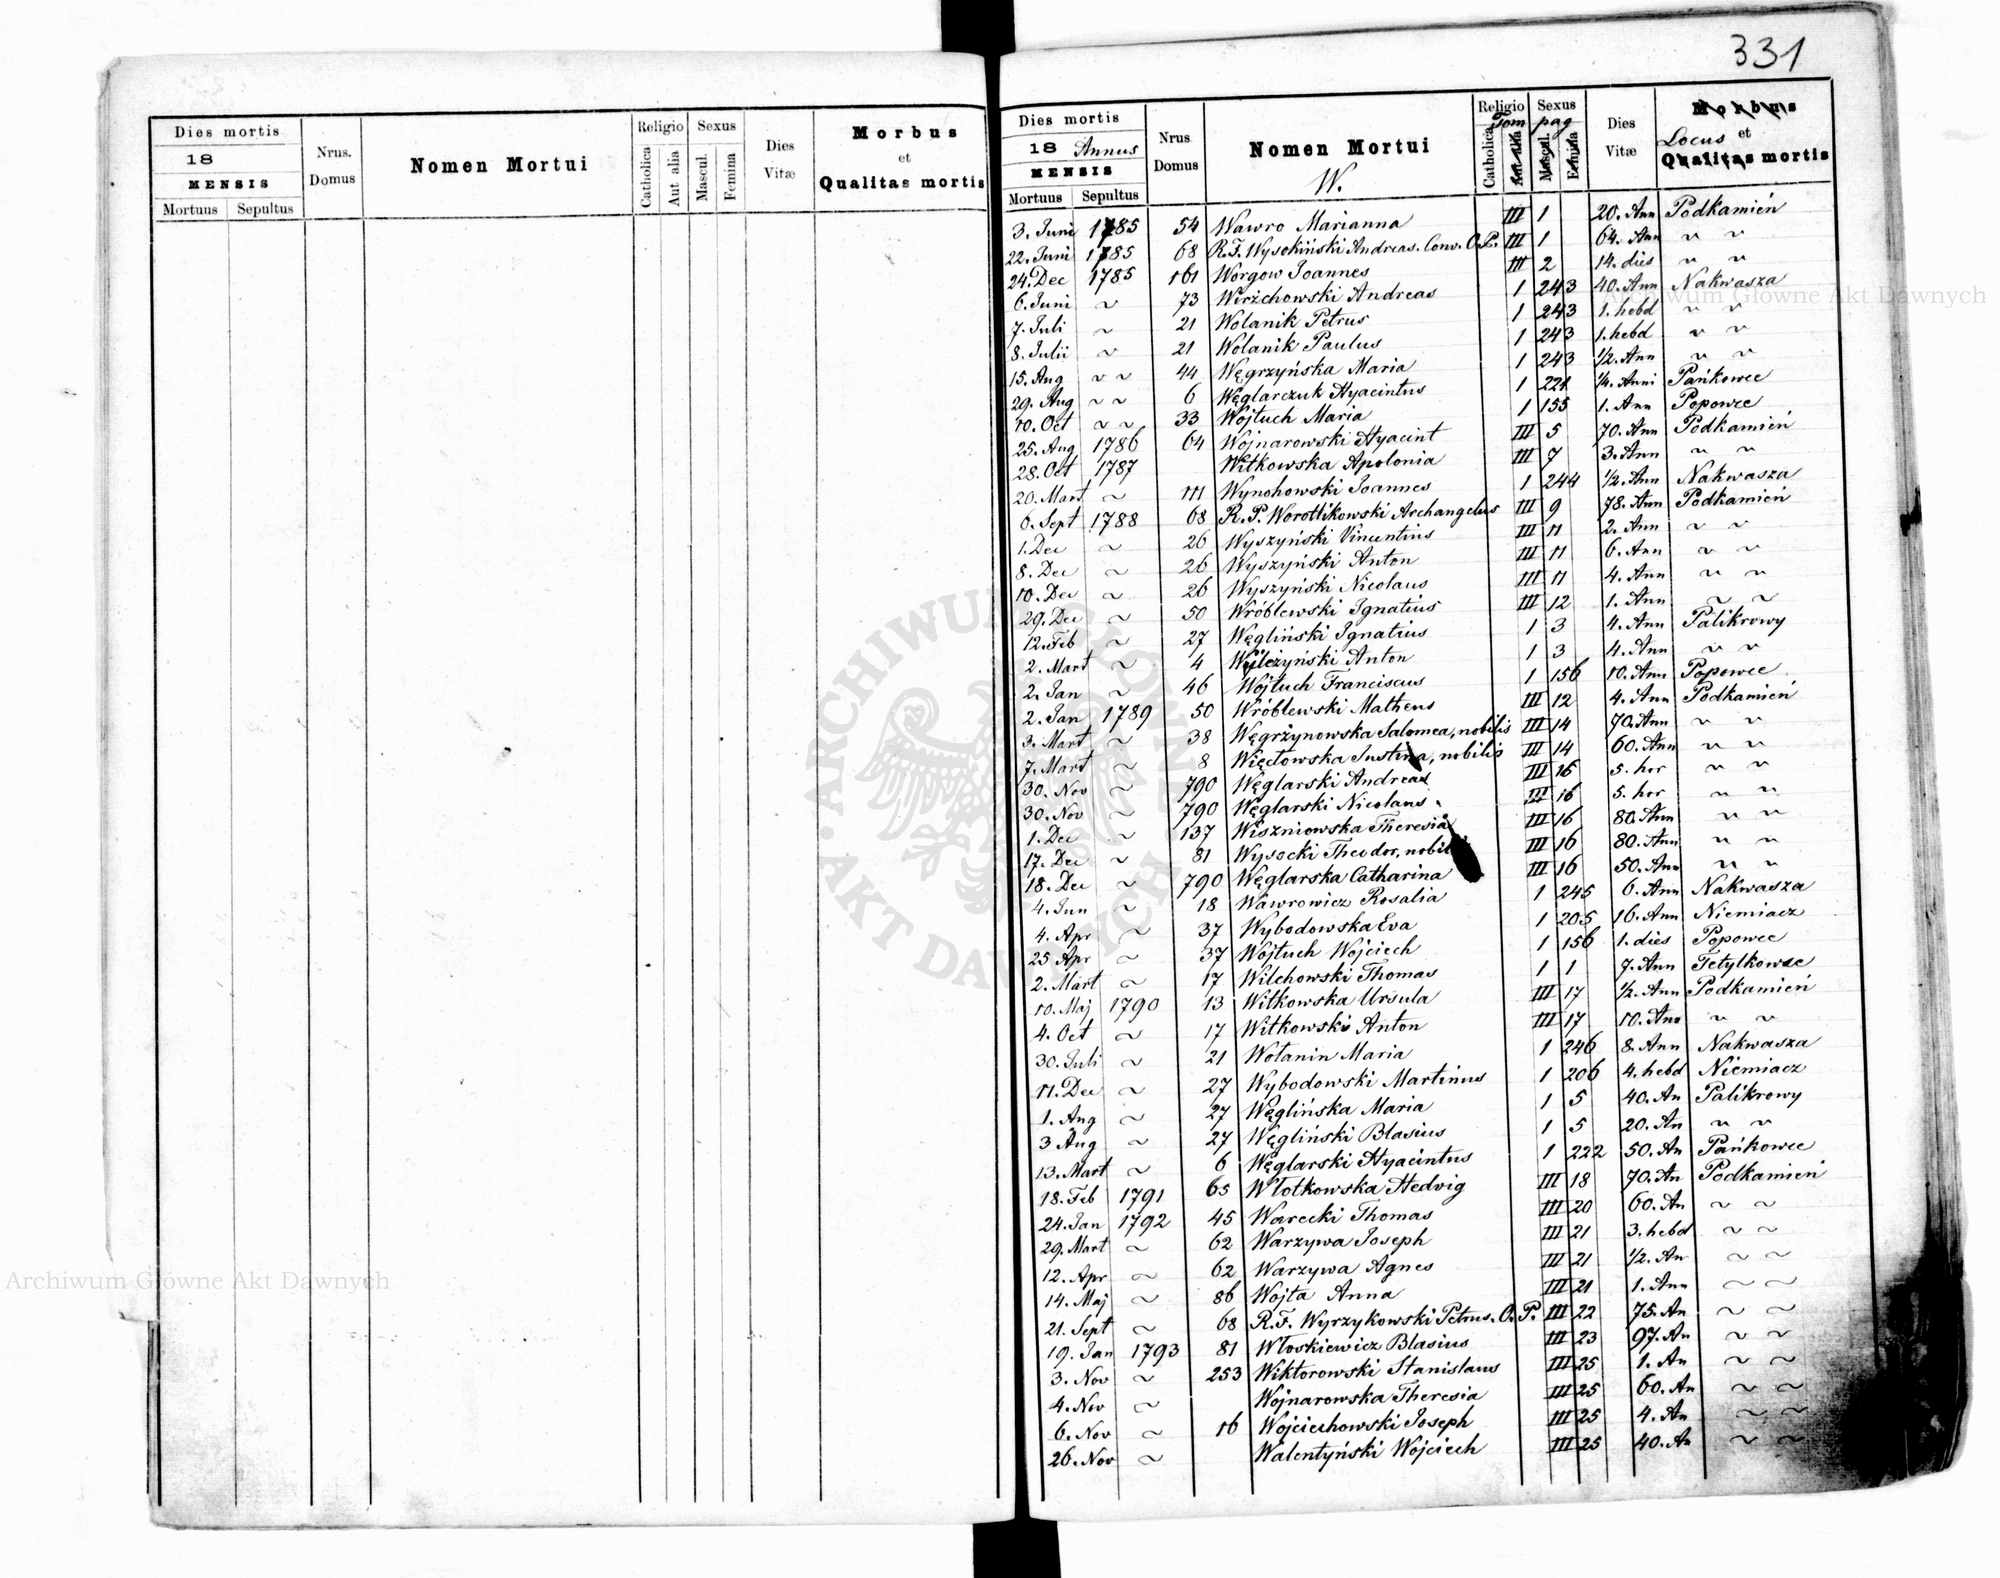 331
Dies mortis
18
MENSIS
Mortuus Sepultus
Nrus. Domus
Nomen Mortui
Religio
Catholica
Aut alia
Sexus
Mascul.
Femina
Dies Vitæ
Morbus
et
Qualitas mortis
Dies mortis
18 Annus
MENSIS
Mortuus Sepultus
Nrus. Domus
Nomen Mortui
W.
Religio
Tom
Catholica
Aut alia
Sexus
pag
Mascul.
Femina
Dies Vitæ
Morbus
Locus et
Qualitas mortis
3. Juni 1785 54 Wawro Marianna III 1 20. Ann Podkamień
22. Juni 1785 68 R.F. Wysokiński Andreas. Conv. O.P. III 1 64. Ann " "
24. Dec 1785 161 Worgow Joannes III 2 14. dies " "
6. Juni ~ 73 Wirżchowski Andreas 1 243 40. Ann Nakwasza
7. Juli ~ 21 Wolanik Petrus 1 243 1. hebd " "
8. Julii ~ 21 Wolanik Paulus 1 243 1. hebd " "
15. Aug ~ ~ 44 Węgrzyńska Maria 1 243 1/2. Ann " "
29. Aug ~ ~ 6 Węglarczuk Hyacintus 1 221 1/4. Anni Pańkowce
10. Oct ~ ~ 33 Wojtuch Maria 1 155 1. Ann Popowce
25. Aug 1786 64 Wojnarowski Hyacint III 5 70. Ann Podkamień
28. Oct 1787 Witkowska Apolonia III 7 3. Ann " "
20. Mart ~ 111 Wynohowski Joannes 1 244 1/2. Ann Nakwasza
6. Sept 1788 68 R.P. Worotlikowski Archangelus III 9 78. Ann Podkamień
1. Dec ~ 26 Wyszyński Vincentius III 11 2. Ann " "
8. Dec ~ 26 Wyszyński Anton III 11 6. Ann " "
10. Dec ~ 26 Wyszyński Nicolaus III 11 4. Ann " "
29. Dec ~ 50 Wróblewski Ignatius III 12 1. Ann ~ ~
12. Feb ~ 27 Węgliński Ignatius 1 3 4. Ann Palikrowy
2. Mart ~ 4 Wilczyński Anton 1 3 4. Ann " "
2. Jan ~ 46 Wojtuch Franciscus 1 156 10. Ann Popowce
2. Jan 1789 50 Wróblewski Matheus III 12 4. Ann Podkamień
3. Mart ~ 38 Węgrzynowska Salomea, nobilis III 14 70. Ann " "
7. Mart ~ 8 Więcłowska Justina, nobilis III 14 60. Ann " "
30. Nov ~ 790 Węglarski Andreas III 16 5. hor " "
30. Nov ~ 790 Węglarski Nicolaus III 16 5. hor " "
1. Dec ~ 137 Wiszniowska Theresia III 16 80. Ann " "
17. Dec ~ 81 Wysocki Theodor, nobil III 16 80. Ann " "
18. Dec ~ 790 Węglarska Catharina III 16 50. Ann " "
4. Jun ~ 18 Wawrowicz Rosalia 1 245 6. Ann Nakwasza
4. Apr ~ 37 Wybodowska Eva 1 205 16. Ann Niemiacz
25 Apr ~ 37 Wojtuch Wojciech 1 156 1. dies Popowce
2. Mart ~ 17 Wilchowski Thomas 1 1 7. Ann Tetylkowce
10. Maj 1790 13 Witkowska Ursula III 17 1/2. Ann Podkamień
4. Oct ~ 17 Witkowski Anton III 17 10. Ann " "
30. Juli ~ 21 Wołanin Maria 1 246 8. Ann Nakwasza
11. Dec ~ 27 Wybodowski Martinus 1 206 4. hebd Niemiacz
1. Aug ~ 27 Węglińska Maria 1 5 40. An Palikrowy
3 Aug ~ 27 Węgliński Blasius 1 5 20. An " "
13. Mart ~ 6 Węglarski Hyacintus 1 222 50. An Pańkowce
18. Feb 1791 65 Włotkowska Hedvig III 18 70. An Podkamień
24. Jan 1792 45 Warecki Thomas III 20 60. An ~ ~
29. Mart ~ 62 Warzywa Joseph III 21 3. hebd ~ ~
12. Apr ~ 62 Warzywa Agnes III 21 1/2. An ~ ~
14. Maj ~ 86 Wojta Anna III 21 1. Ann ~ ~
21. Sept ~ 68 R.F. Wyrzykowski Petrus. O.P. III 22 75. An ~ ~
19. Jan 1793 81 Włoskiewicz Blasius III 23 97. An ~ ~
3. Nov ~ 253 Wiktorowski Stanislaus III 25 1. An ~ ~
4. Nov ~ Wojnarowska Theresia III 25 60. An ~ ~
6. Nov ~ 16 Wojciechowski Joseph III 25 4. An ~ ~
26. Nov ~ Walentyński Wojciech III 25 40. An ~ ~
Archiwum Główne Akt Dawnych
Archiwum Główne Akt Dawnych
ARCHIWUM GŁÓWNE AKT DAWNYCH